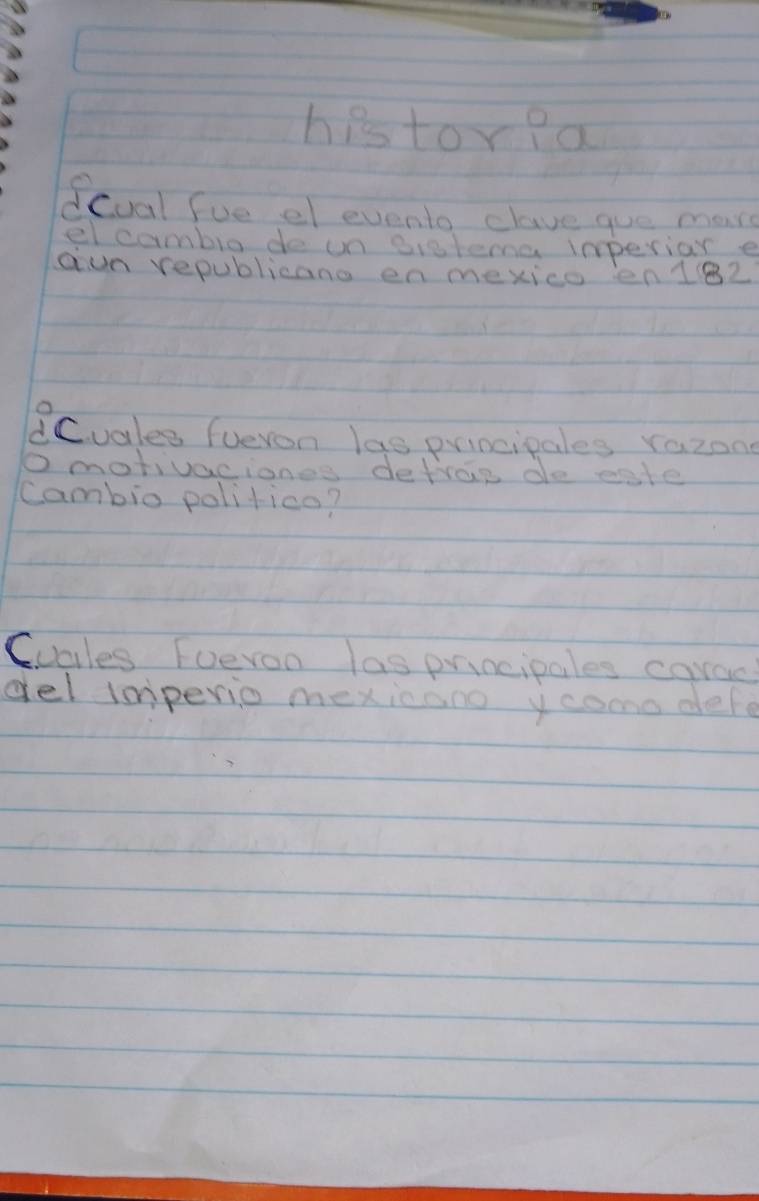 historia
¿Cual fue el evento clave que marc
el cambio de un sistema imperiar e
aun republicano en mexico en 182
¿Cuales fueron las principales razone
o motivaciones detrás de este
cambio politico?
Cuales Fueron las principales carac
del imperio mexicano y como defe